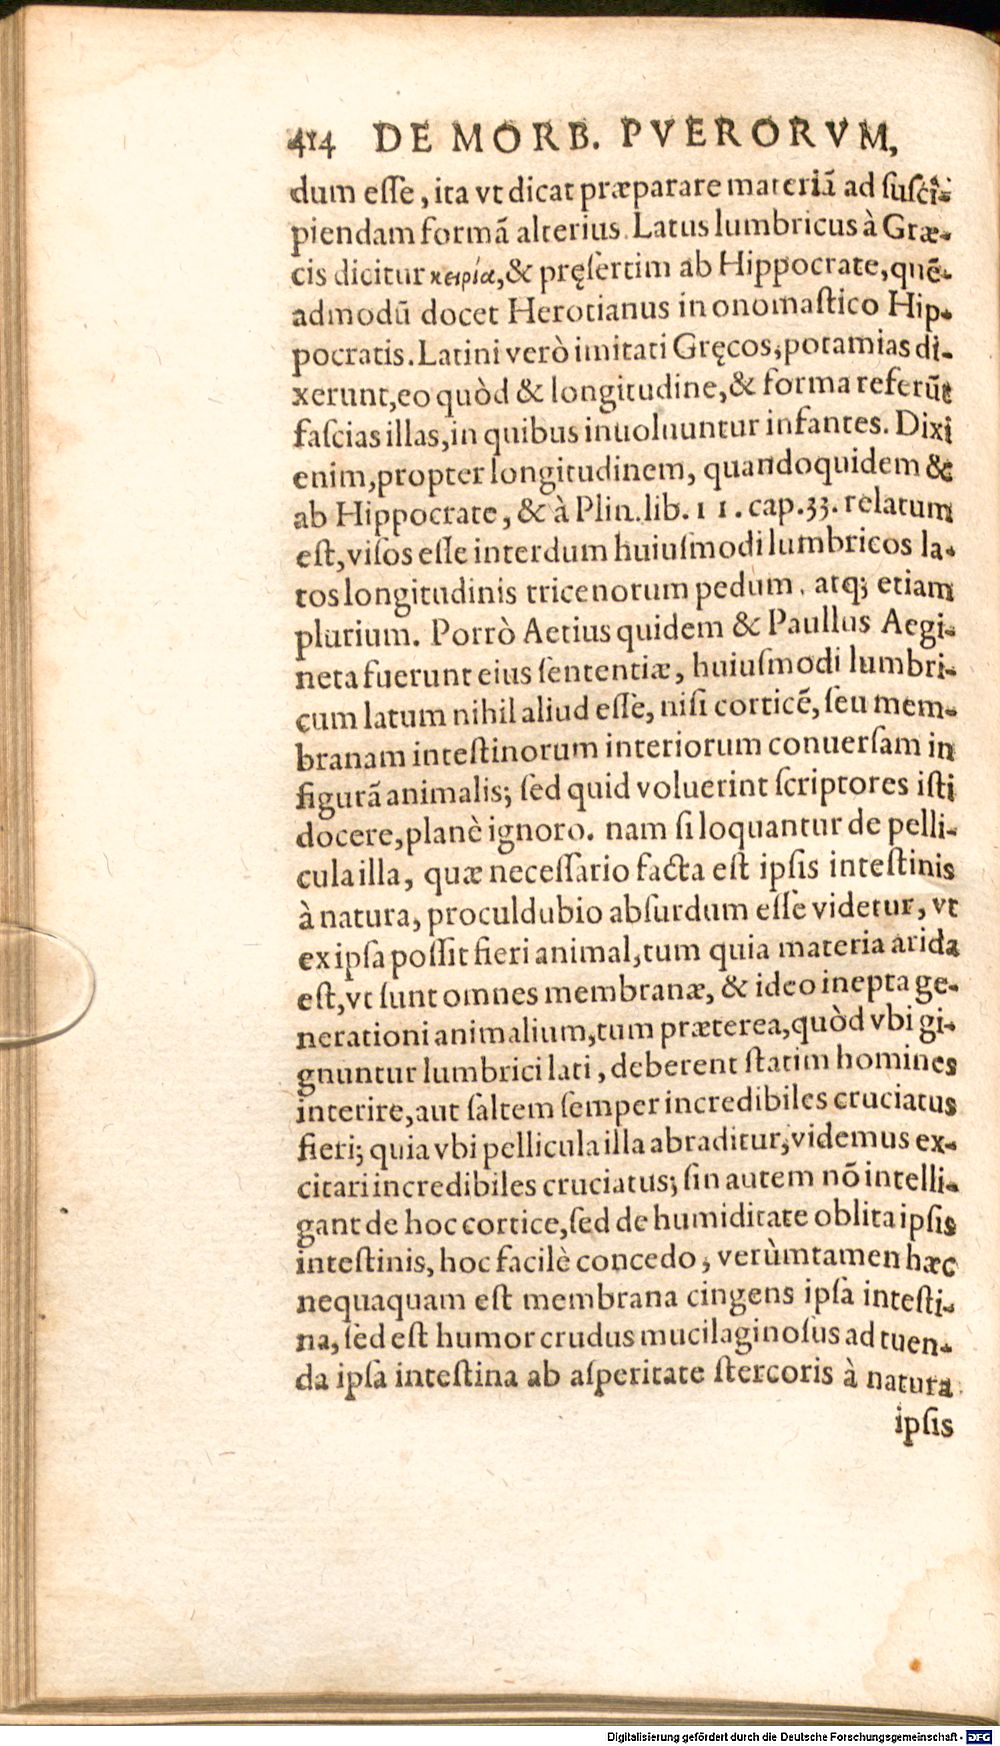 414 DE MORB. PVERORVM,
dum eſſe, ita vt dicat præparare materiã ad ſuſci-
piendam formã alterius. Latus lumbricus à Græ-
cis dicitur κειρία, & pręſertim ab Hippocrate, quẽ-
admodũ docet Herotianus in onomaſtico Hip-
pocratis. Latini verò imitati Gręcos, potamias di-
xerunt, eo quòd & longitudine, & forma referũt
faſcias illas, in quibus inuoluuntur infantes. Dixi
enim, propter longitudinem, quandoquidem &
ab Hippocrate, & à Plin. lib. 11. cap. 33. relatum
eſt, viſos eſſe interdum huiuſmodi lumbricos la-
tos longitudinis tricenorum pedum. atq; etiam
plurium. Porrò Aetius quidem & Paullus Aegi-
neta fuerunt eius ſententiæ, huiuſmodi lumbri-
cum latum nihil aliud eſſe, niſi corticẽ, ſeu mem-
branam inteſtinorum interiorum conuerſam in
figurã animalis; ſed quid voluerint ſcriptores iſti
docere, planè ignoro. nam ſi loquantur de pelli-
cula illa, quæ neceſſario facta eſt ipſis inteſtinis
à natura, proculdubio abſurdum eſſe videtur, vt
ex ipſa poſſit fieri animal, tum quia materia arida
eſt, vt ſunt omnes membranæ, & ideo inepta ge-
nerationi animalium, tum præterea, quòd vbi gi-
gnuntur lumbrici lati, deberent ſtatim homines
interire, aut ſaltem ſemper incredibiles cruciatus
fieri; quia vbi pellicula illa abraditur, videmus ex-
citari incredibiles cruciatus; ſin autem nõ intelli-
gant de hoc cortice, ſed de humiditate oblita ipſis
inteſtinis, hoc facilè concedo, verùmtamen hæc
nequaquam eſt membrana cingens ipſa inteſti-
na, ſed eſt humor crudus mucilaginoſus ad tuen-
da ipſa inteſtina ab aſperitate ſtercoris à natura
ipſis
Digitalisierung gefördert durch die Deutsche Forschungsgemeinschaft - DFG